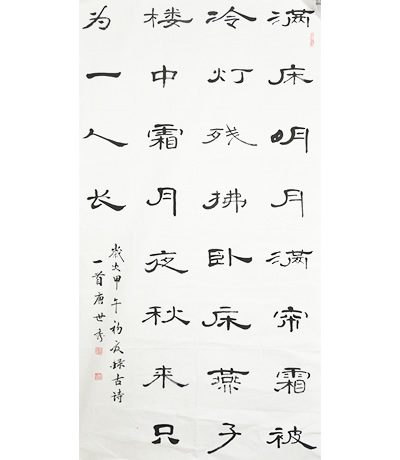 满床明月满帘霜被
冷灯残拂卧床燕子
楼中霜月夜秋来只
为一人长
歲次甲午初夏録古诗
一首唐世秀